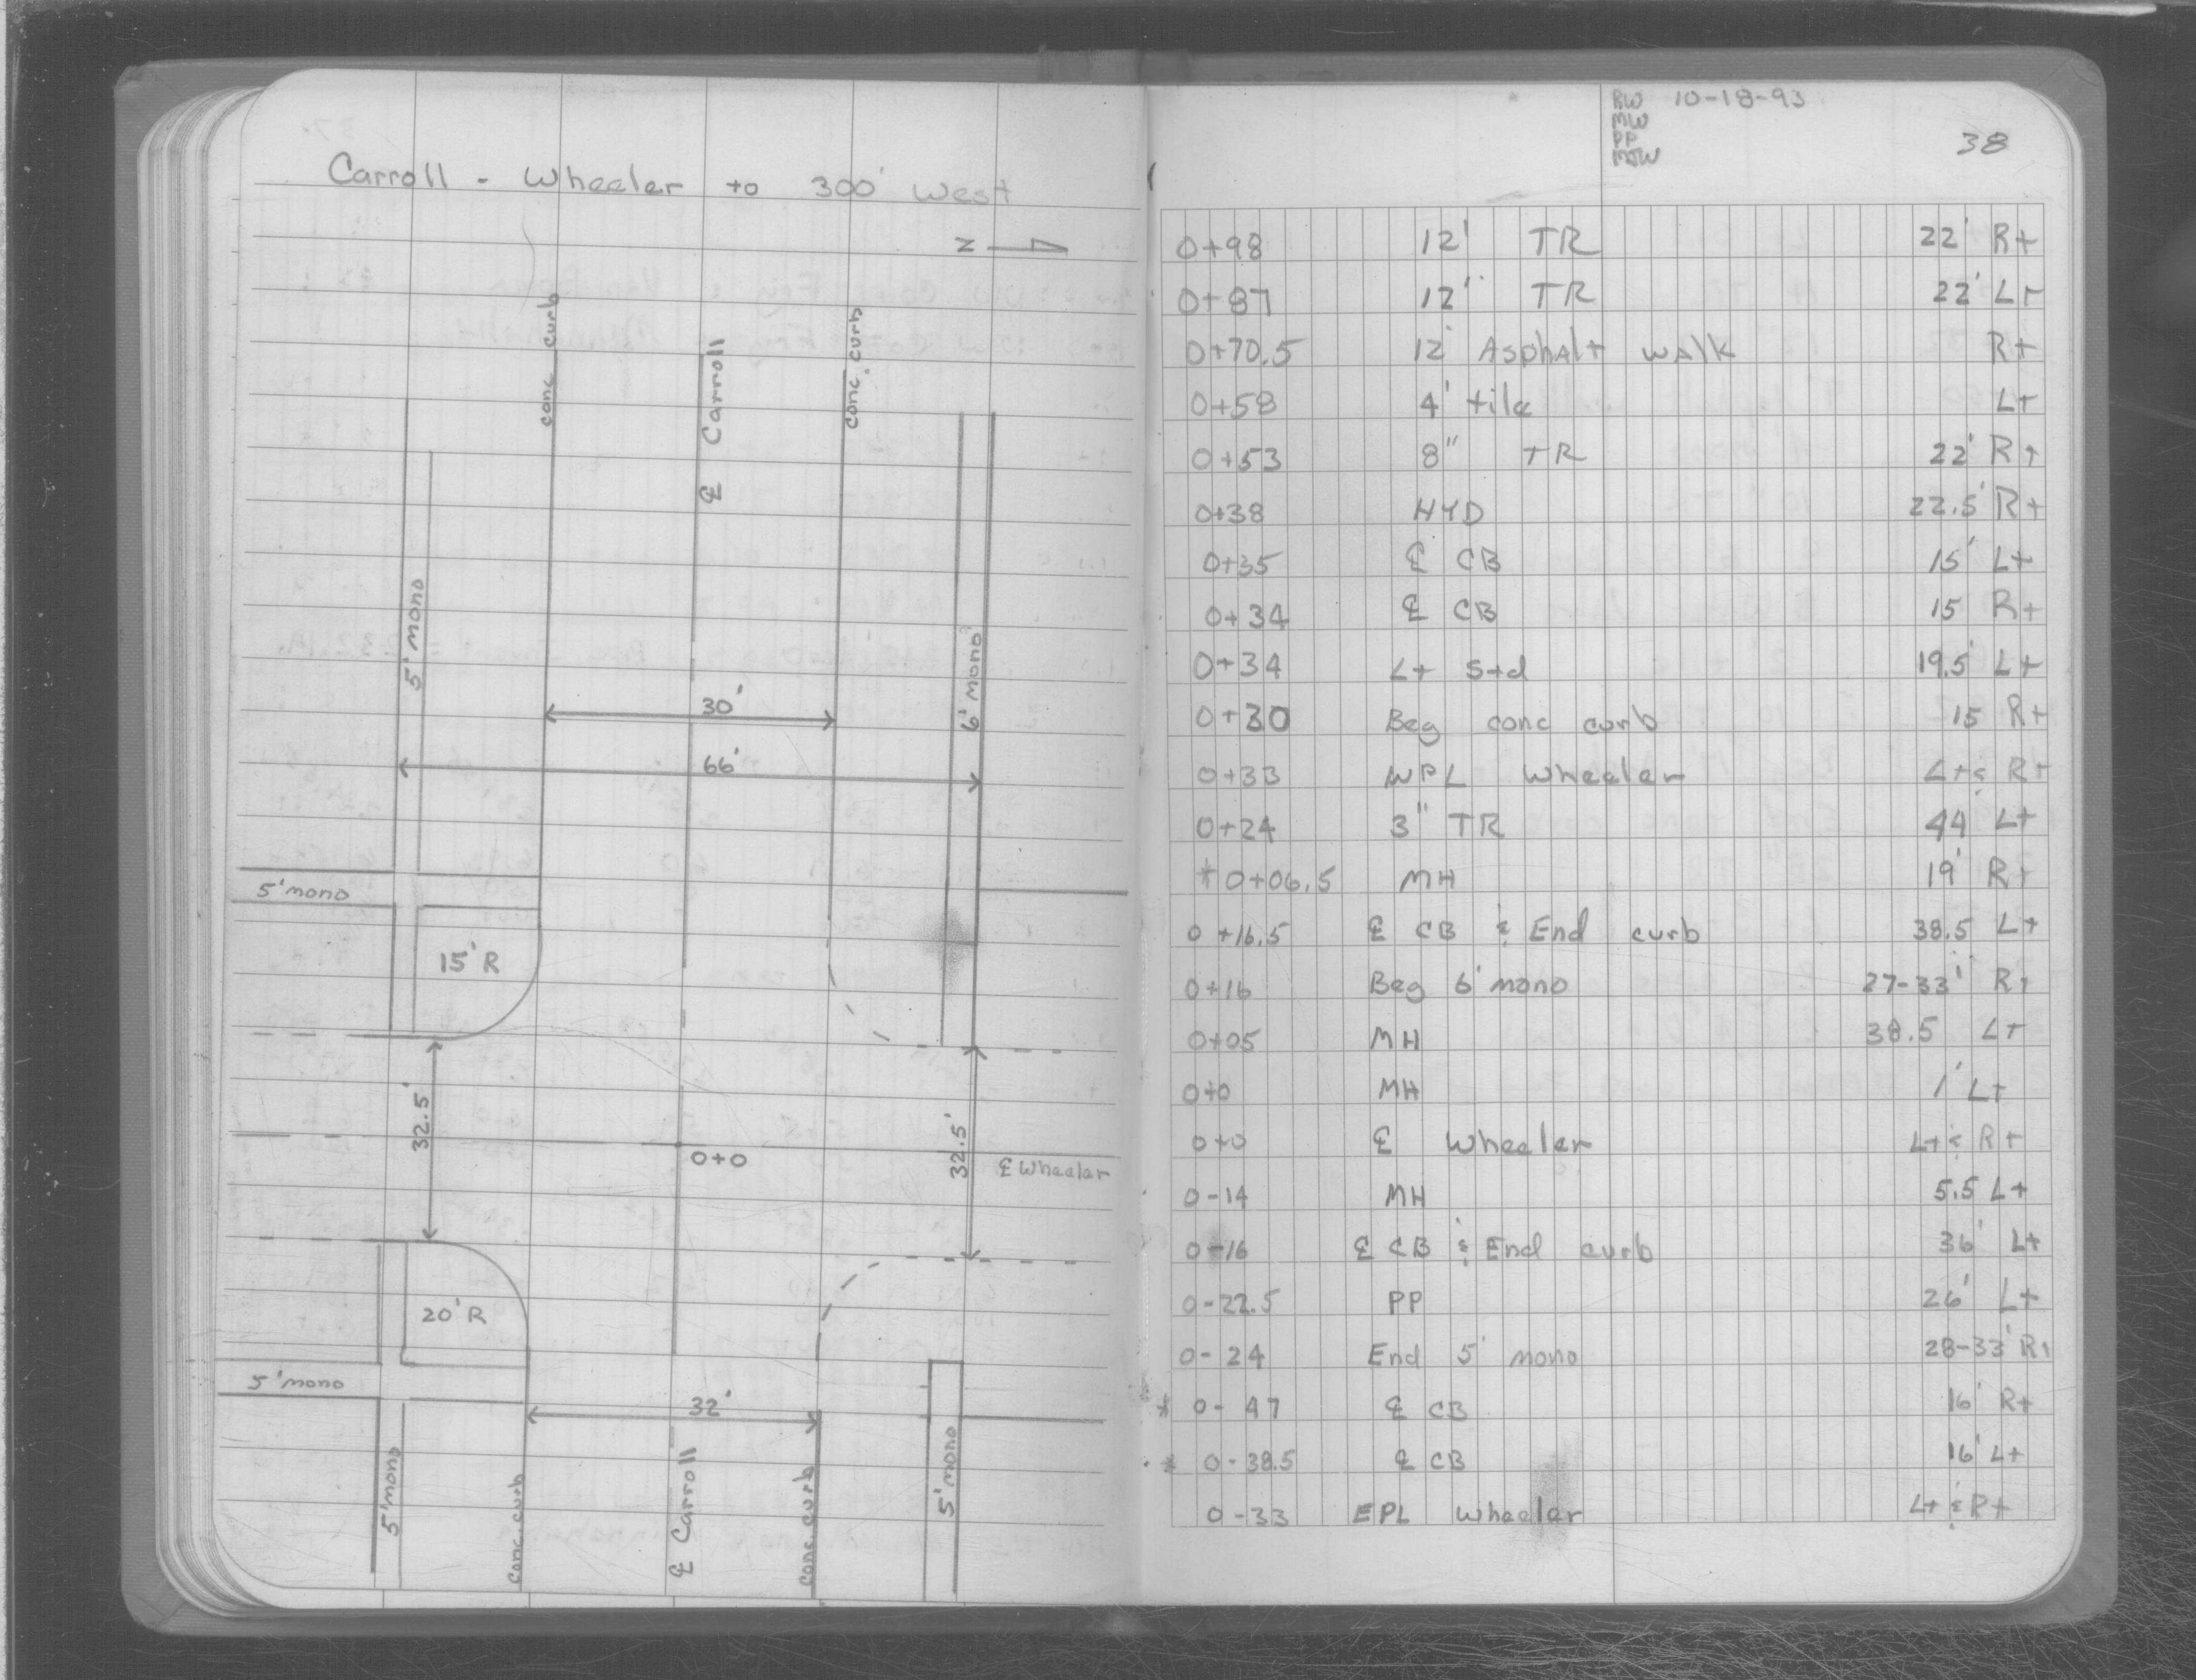 Carroll - Wheeler to 300' West
N
conc curb
℄ Carroll
conc. curb
5' mono
6' mono
30'
66'
5' mono
15' R
32.5'
0+0
32.5'
℄ Wheeler
20' R
5' mono
32'
5' mono
conc. curb
℄ Carroll
conc. curb
5' mono
RW 10-18-93
MW
PP
MJW
38
0+98 12' TR 22' Rt
0+87 12" TR 22' Lt
0+70.5 12' Asphalt walk Rt
0+58 4' tile Lt
0+53 8" TR 22' Rt
0+38 HYD 22.5' Rt
0+35 ℄ CB 15' Lt
0+34 ℄ CB 15 Rt
0+34 Lt Std 19.5' Lt
0+30 Beg conc curb 15 Rt
0+33 WPL Wheeler Lt & Rt
0+24 3" TR 44' Lt
* 0+06.5 MH 19' Rt
0+16.5 ℄ CB & End curb 38.5 Lt
0+16 Beg 6' mono 27-33' Rt
0+05 MH 38.5 Lt
0+0 MH 1' Lt
0+0 ℄ Wheeler Lt & Rt
0-14 MH 5.5 Lt
0-16 ℄ CB & End curb 36' Lt
0-22.5 PP 26' Lt
0-24 End 5' mono 28-33' Rt
* 0-47 ℄ CB 16' Rt
* 0-38.5 ℄ CB 16' Lt
0-33 EPL Wheeler Lt & Rt